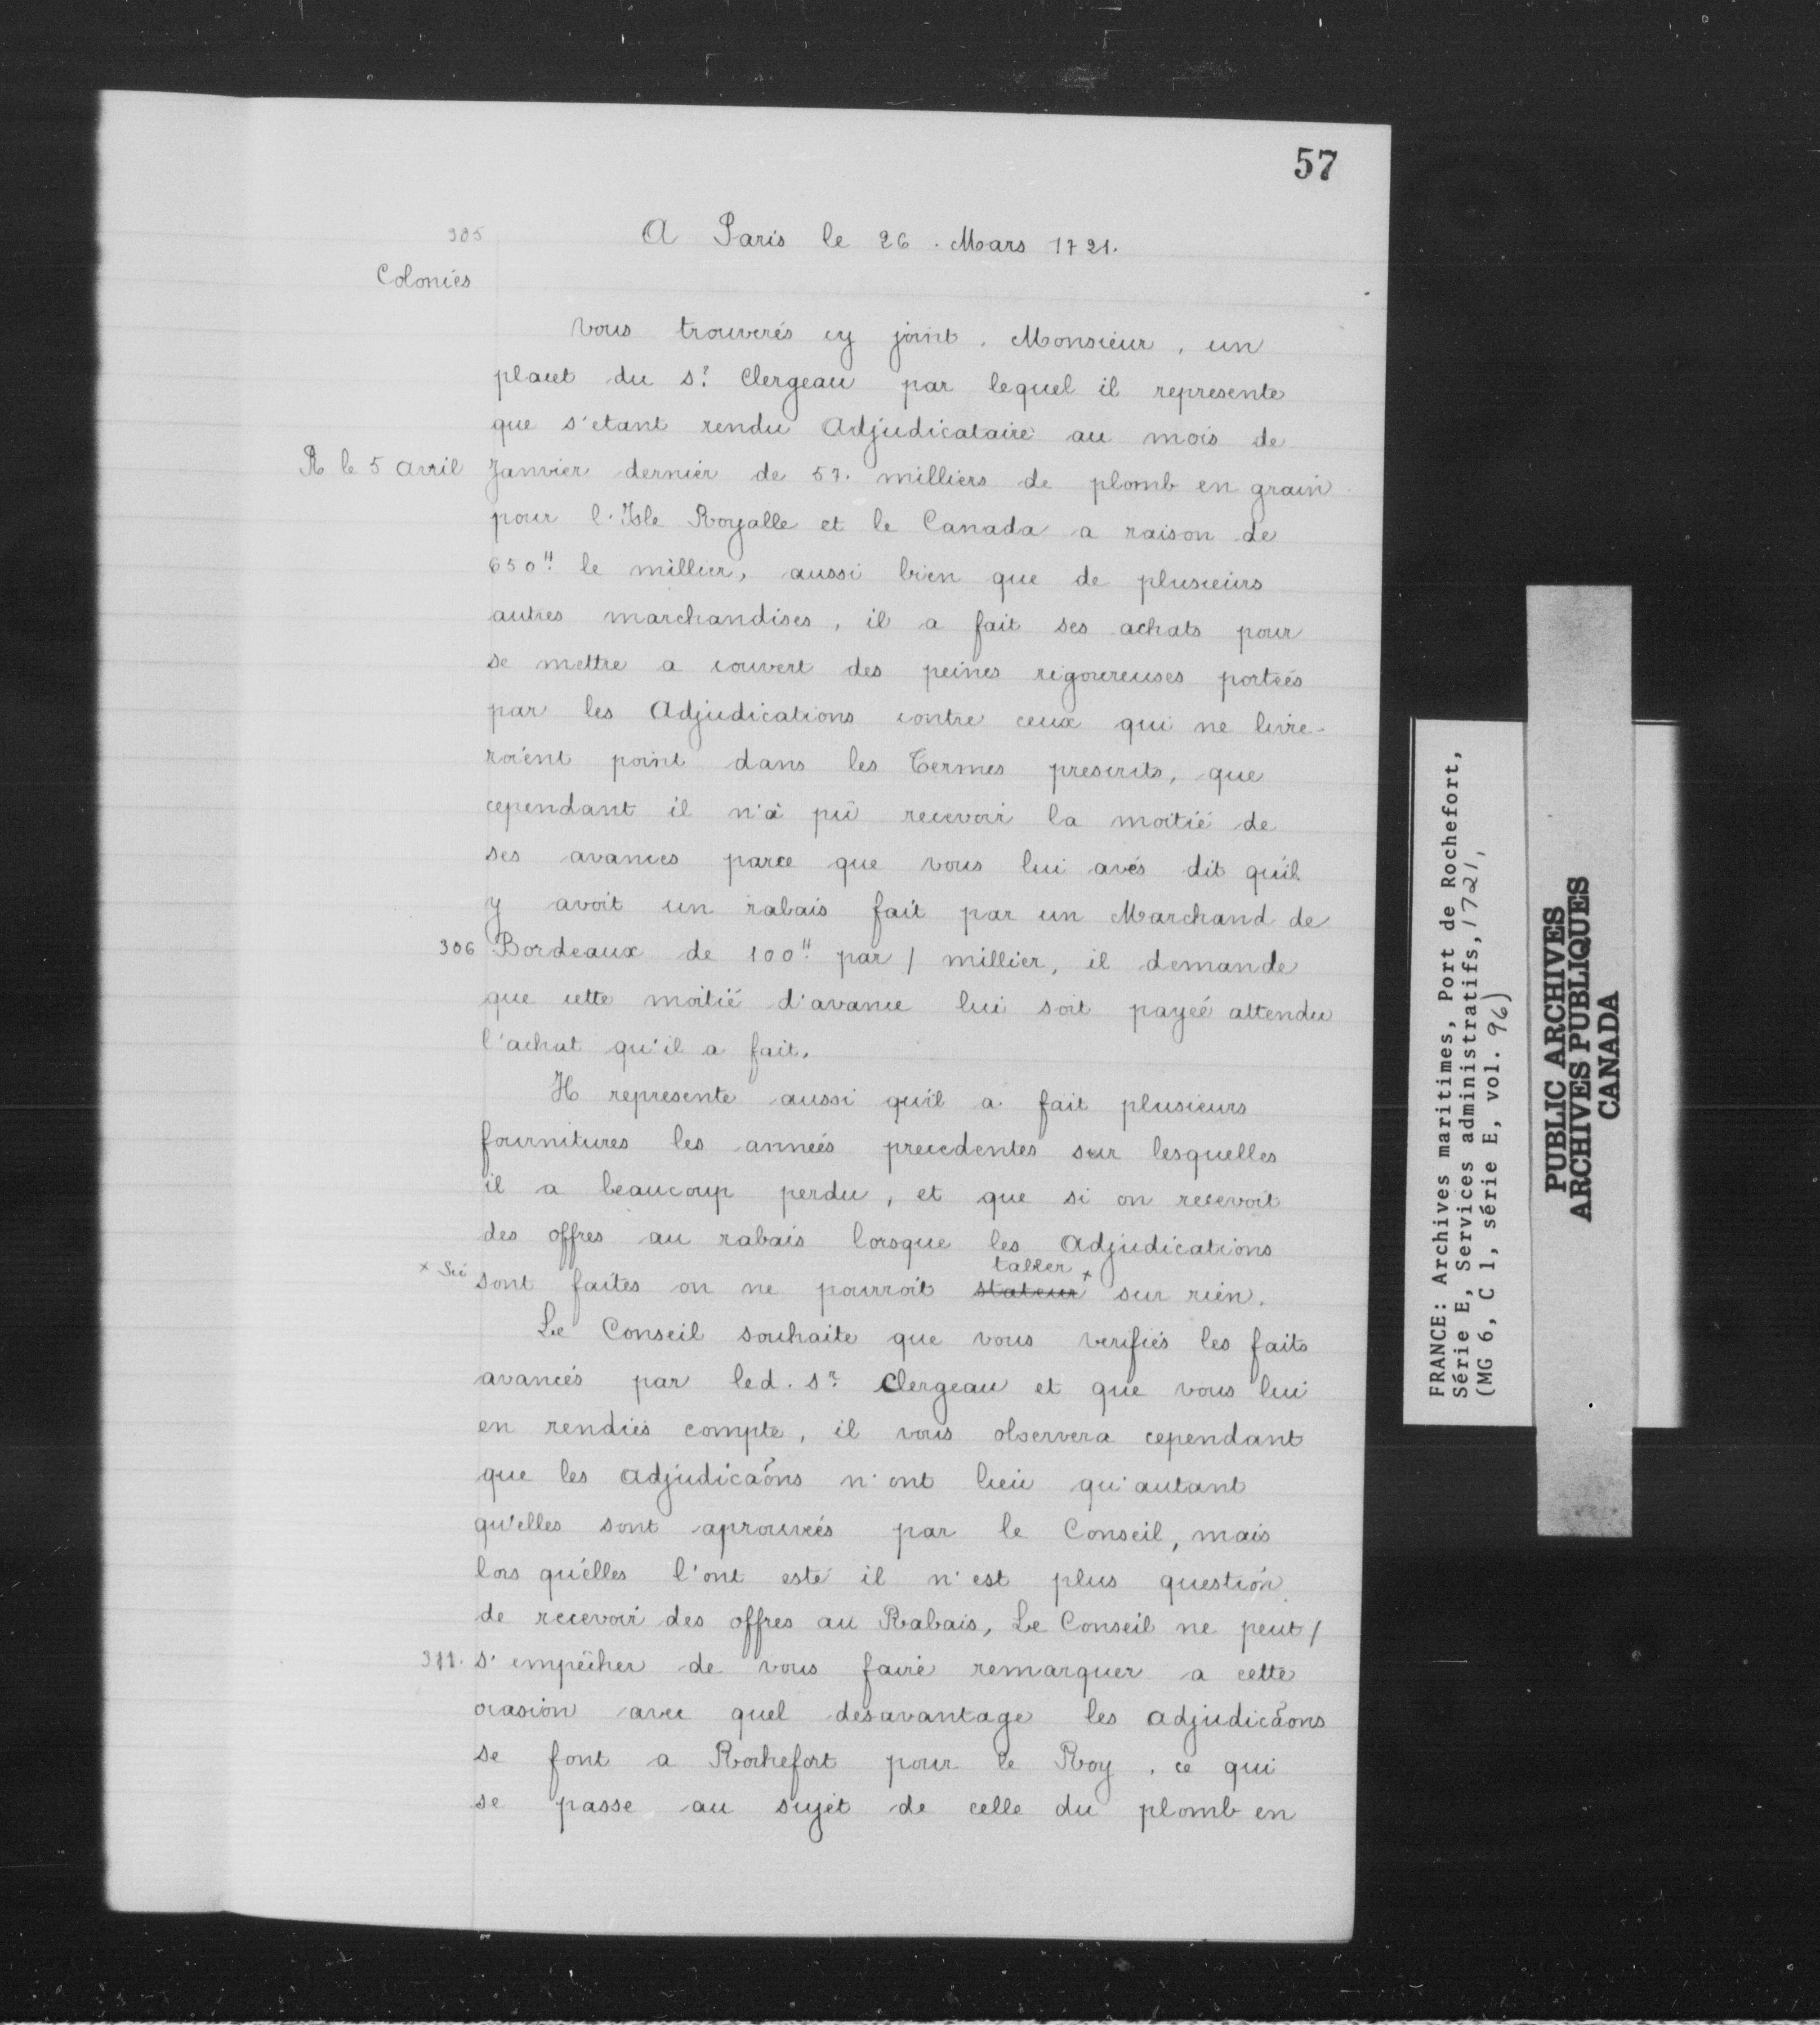 57
305
A Paris le 26. Mars 1721.
Colonies
Vous trouverés cy joint, Monsieur, un
placet du Sr. Clergeau par lequel il represente
que s'etant rendu Adjudicataire au mois de
R le 5 avril
Janvier dernier de 57. milliers de plomb en grain
pour l'Isle Royalle et le Canada a raison de
650" le millier, aussi bien que de plusieurs
autres marchandises, il a fait ses achats pour
se mettre a couvert des peines rigoureuses portées
par les Adjudications contre ceux qui ne livre-
roient point dans les Termes prescrits, que
cependant il n'a pû recevoir la moitié de
ses avances parce que vous lui avés dit qu'il
y avoit un rabais fait par un Marchand de
306
Bordeaux de 100" par / millier, il demande
que cette moitié d'avance lui soit payée attendu
l'achat qu'il a fait.
Il represente aussi qu'il a fait plusieurs
fournitures les années precedentes sur lesquelles
il a beaucoup perdu, et que si on recevoit
des offres au rabais lorsque les Adjudications
x Sic
sont faites on ne pourroit stateur tabler x sur rien.
Le Conseil souhaite que vous verifiés les faits
avancés par led. Sr. Clergeau et que vous lui
en rendiés compte, il vous observera cependant
que les adjudicaõns n'ont lieu qu'autant
qu'elles sont aprouvées par le Conseil, mais
lors qu'elles l'ont esté il n'est plus question
de recevoir des offres au Rabais, Le Conseil ne peut /
311.
s'empêcher de vous faire remarquer a cette
ocasion avec quel desavantage les adjudicaõns
se font a Rochefort pour le Roy, ce qui
se passe au sujet de celle du plomb en
FRANCE: Archives maritimes, Port de Rochefort,
Série E, Services administratifs, 1721,
(MG 6, C 1, série E, vol. 96)
PUBLIC ARCHIVES
ARCHIVES PUBLIQUES
CANADA